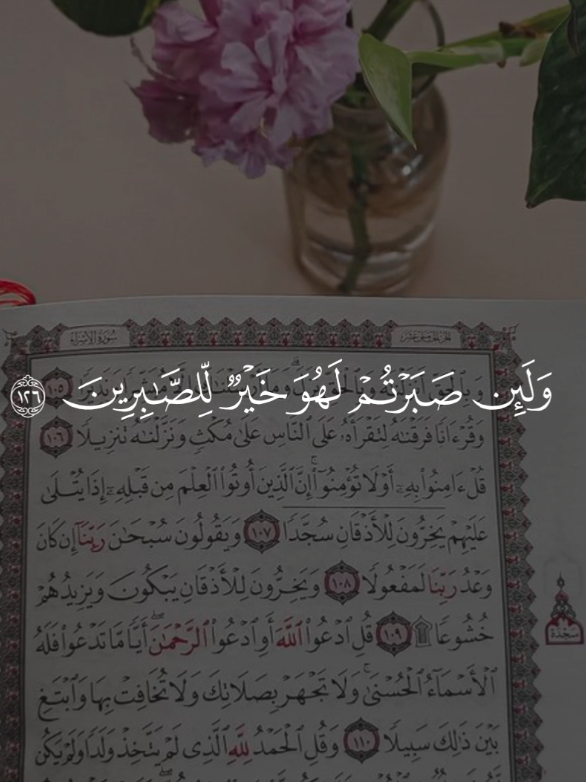 سورة الإسراء
وَلَئِن صَبَرْتُمْ لَهُوَ خَيْرٌ لِّلصَّـٰبِرِينَ ١٢٦
وَقُرْءَانًا فَرَقْنَـٰهُ لِتَقْرَأَهُۥ عَلَى ٱلنَّاسِ عَلَىٰ مُكْثٍ وَنَزَّلْنَـٰهُ تَنزِيلًا ١٠٦
قُلْ ءَامِنُوا۟ بِهِۦٓ أَوْ لَا تُؤْمِنُوٓا۟ ۚ إِنَّ ٱلَّذِينَ أُوتُوا۟ ٱلْعِلْمَ مِن قَبْلِهِۦٓ إِذَا يُتْلَىٰ
عَلَيْهِمْ يَخِرُّونَ لِلْأَذْقَانِ سُجَّدًا ١٠٧ وَيَقُولُونَ سُبْحَـٰنَ رَبِّنَآ إِن كَانَ
وَعْدُ رَبِّنَا لَمَفْعُولًا ١٠٨ وَيَخِرُّونَ لِلْأَذْقَانِ يَبْكُونَ وَيَزِيدُهُمْ
خُشُوعًا ۩ ١٠٩ قُلِ ٱدْعُوا۟ ٱللَّهَ أَوِ ٱدْعُوا۟ ٱلرَّحْمَـٰنَ ۖ أَيًّا مَّا تَدْعُوا۟ فَلَهُ
سجدة
ٱلْأَسْمَآءُ ٱلْحُسْنَىٰ ۚ وَلَا تَجْهَرْ بِصَلَاتِكَ وَلَا تُخَافِتْ بِهَا وَٱبْتَغِ
بَيْنَ ذَٰلِكَ سَبِيلًا ١١٠ وَقُلِ ٱلْحَمْدُ لِلَّهِ ٱلَّذِى لَمْ يَتَّخِذْ وَلَدًا وَلَمْ يَكُن